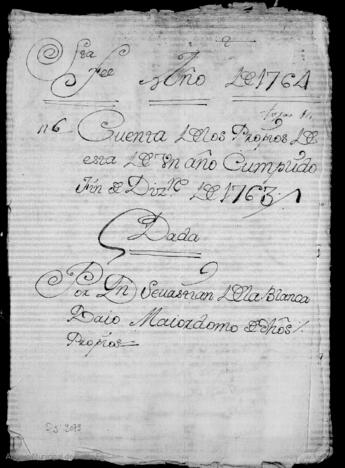 Sta Fee Año De 1764
116 Cuenta De los Propios De
esta De Un año Cumplido
Fin de Diz.re De 1763
Dada
Por Dn Sevastian De la Blanca
Maiordomo de dhos
Propios